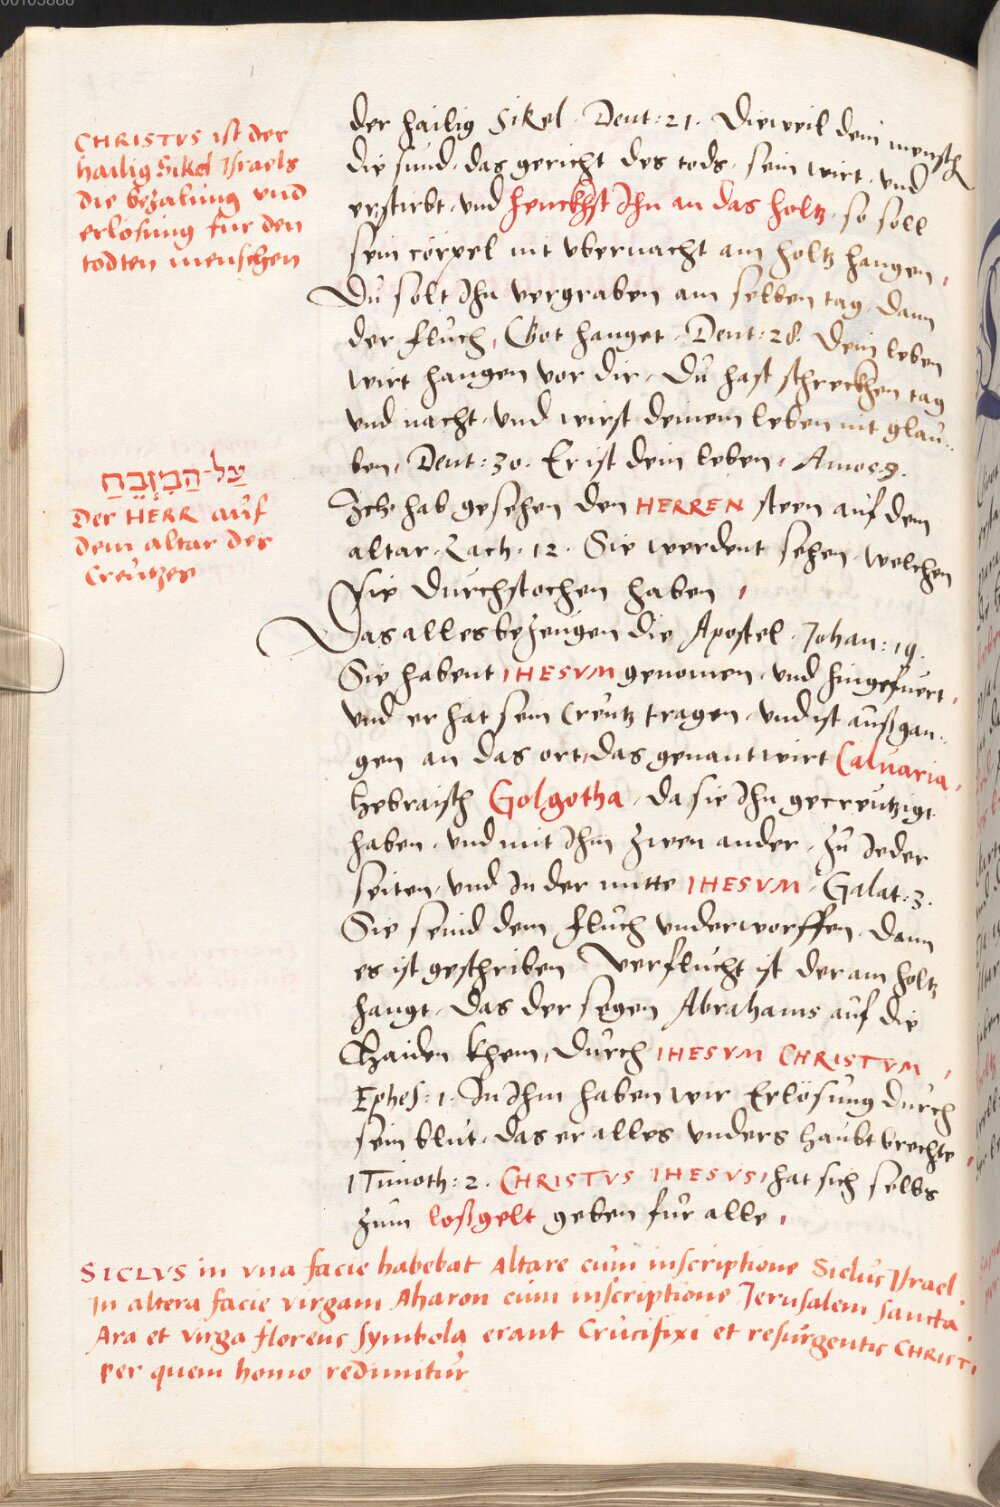 CHRISTVS ist der
hailig Sikel Israels
die bezalung vnd
erlösung für den
todten menschen
עַל־הַמִזְבֵּחַ
Der HERR auf
dem altar des
Creützes
der hailig Sikel. Deut: 21. Dieweil dein mensch
die sund, das gericht des tods, sein wirt, vnd
erstirbt, vnd henckhst Ihn an das holtz, so soll
sein cörpel nit vbernacht am holtz hangen,
Du solt Ihn vergraben am selben tag, dann
der fluch, Got hanget. Deut: 28. Dein leben
wirt hangen vor dir, Du hast schreckhen tag
vnd nacht, vnd wirst deinem leben nit glau-
ben, Deut: 30. Er ist dein leben, Amos 9.
Ich hab gesehen den HERREN steen auf dem
altar. Zach: 12. Sie werdent sehen, welchen
sie durchstochen haben,
Das alles bezeugen die Apostel. Johan: 19.
Sie habent IHESVM genomen, vnd hingefuert,
vnd er hat sein Creutz tragen, vnd ist außgan-
gen an das ort, das genant wirt Caluaria,
hebraisch Golgotha, da sie Ihn gecreutzigt
haben, vnd mit Ihm zwen ander, zu Jeder
seiten, vnd In der mitte IHESVM, Galat: 3.
Sie seind dem fluch vnderworffen, Dann
es ist geschriben Verflucht ist der am holtz
hangt, Das der segen Abrahams auf die
Haiden khem, Durch IHESVM CHRISTVM,
Ephes: 1. In Ihm haben wir Erlösung durch
sein blut, das er alles vnders haubt brechte,
1 Timoth: 2. CHRISTVS IHESVS, hat sich selbs
zum loßgelt geben für alle,
SICLVS in vna facie habebat Altare cum inscriptione Siclus Israel.
In altera facie virgam Aharon cum inscriptione Jerusalem sancta.
Ara et virga florens symbola erant Crucifixi et resurgentis CHRISTI,
per quem homo redimitur